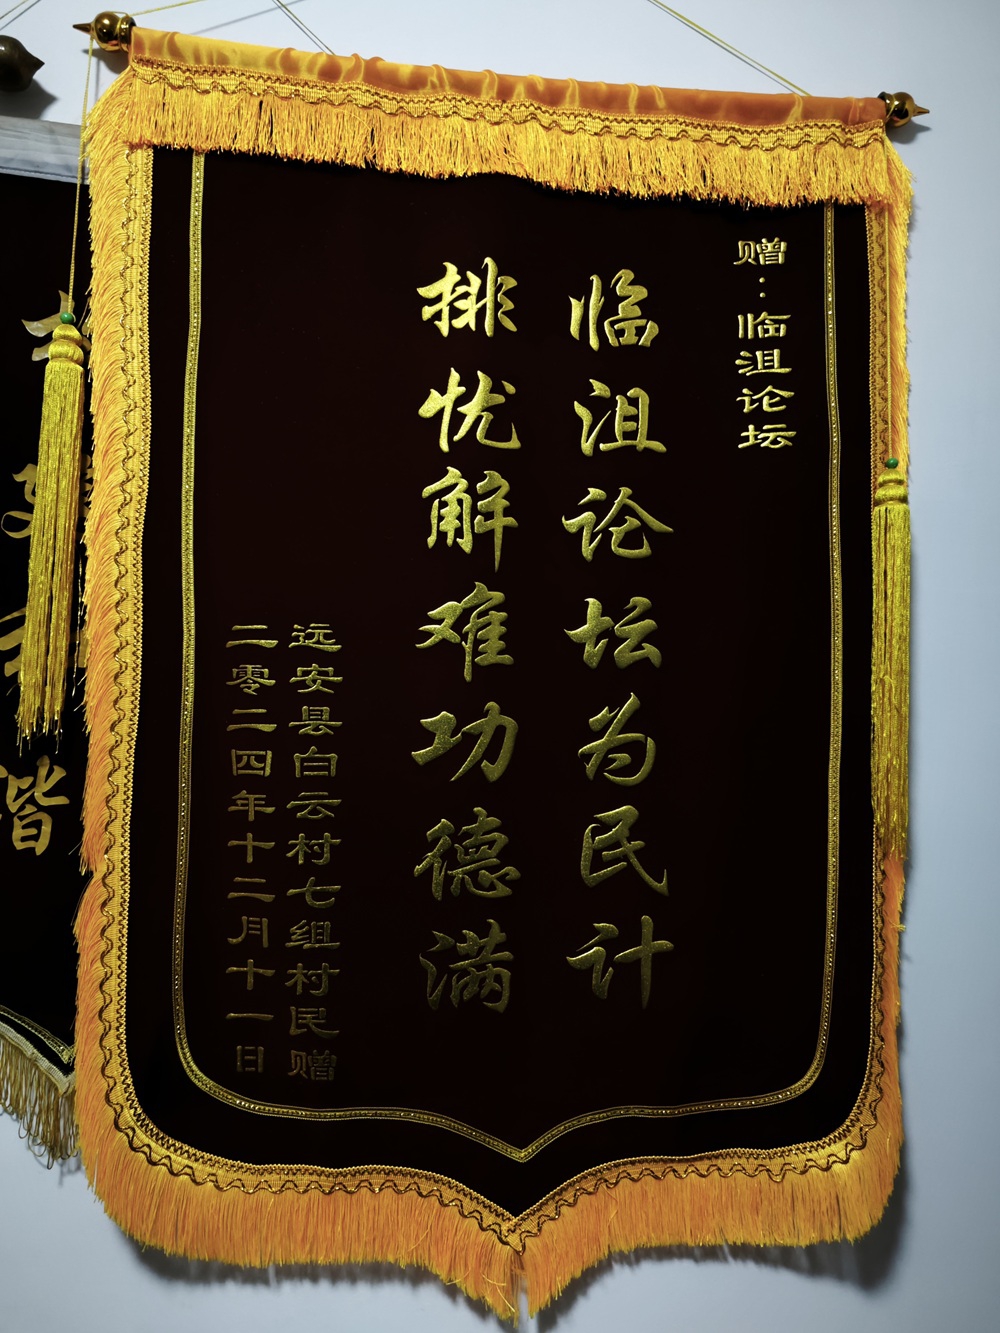 赠：临沮论坛
临沮论坛为民计
排忧解难功德满
远安县白云村七组村民赠
二零二四年十二月十一日
谐